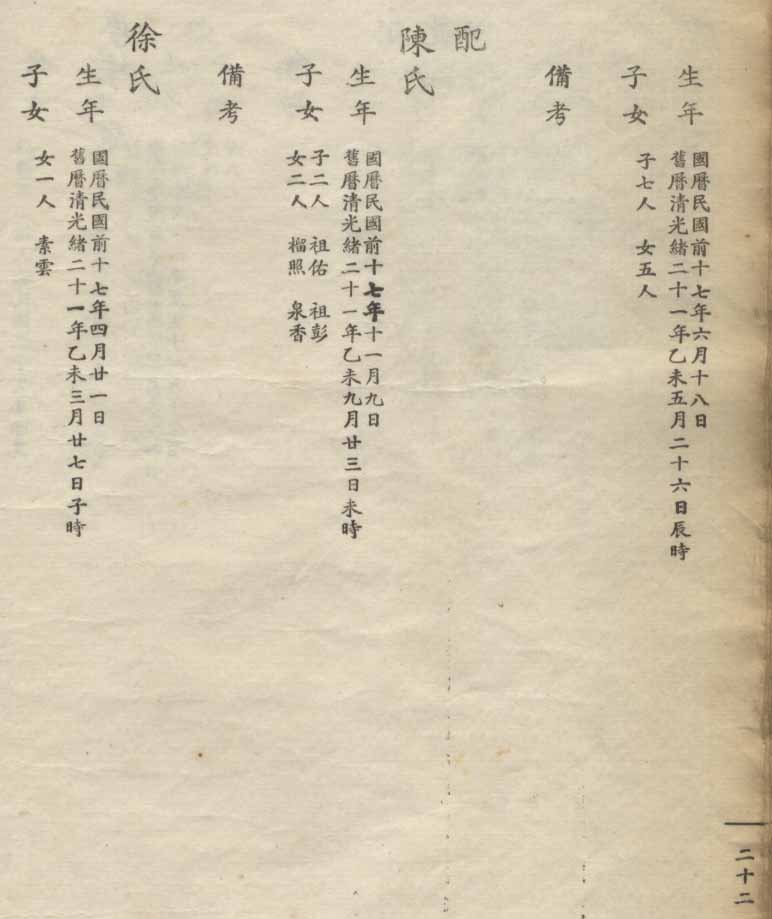 生年
國曆民國前十七年六月十八日
舊曆清光緒二十一年乙未五月二十六日辰時
子女
子七人 女五人
備考
配
陳氏
生年
國曆民國前十七年十一月九日
舊曆清光緒二十一年乙未九月廿三日未時
子女
子二人 祖佑 祖彭
女二人 榴照 泉香
備考
徐氏
生年
國曆民國前十七年四月廿一日
舊曆清光緒二十一年乙未三月廿七日子時
子女
女一人 素雲
二十二